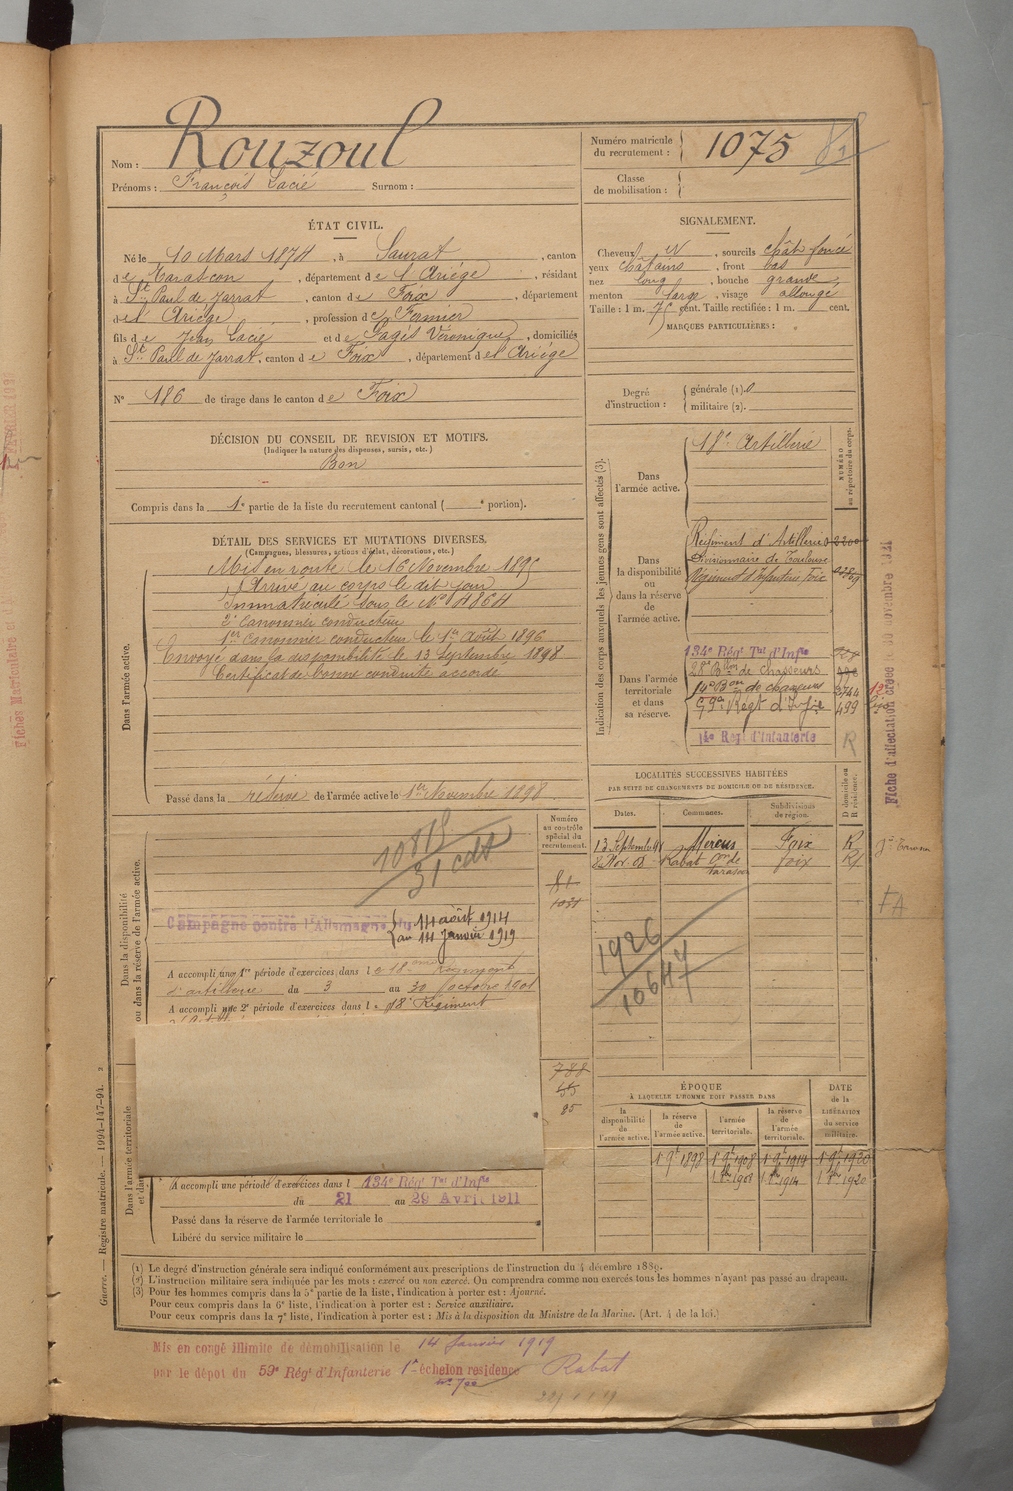 Rouzoul
Nom :
Prénoms : François Lacié Surnom :
Numéro matricule du recrutement : 1075
Classe de mobilisation :
ÉTAT CIVIL.
Né le 10 Mars 1874, à Saurat, canton
de Tarascon, département de l'Ariége, résidant
à St Paul de Jarrat, canton de Foix, département
de l'Ariége, profession de Fermier
fils de Jean Lacié et de Pagés Véronique, domiciliés
à St Paul de Jarrat, canton de Foix, département de l'Ariége
N° 186 de tirage dans le canton de Foix
DÉCISION DU CONSEIL DE REVISION ET MOTIFS.
(Indiquer la nature des dispenses, sursis, etc.)
Bon
Compris dans la 1e partie de la liste du recrutement cantonal ( e portion).
DÉTAIL DES SERVICES ET MUTATIONS DIVERSES.
(Campagnes, blessures, actions d'éclat, décorations, etc.)
Dans l'armée active.
Mis en route le 16 Novembre 1895
Arrivé au corps le dit jour
Immatriculé sous le N° 4864
2e Canonnier conducteur
1er Canonnier conducteur le 1er Août 1896
Envoyé dans la disponibilité le 13 Septembre 1898
Certificat de bonne conduite accordé
Passé dans la réserve de l'armée active le 1er Novembre 1898
SIGNALEMENT.
Cheveux N, sourcils chât foncé
yeux châtains, front bas
nez long, bouche grande
menton large, visage allongé
Taille : 1 m. 75 cent. Taille rectifiée : 1 m. cent.
MARQUES PARTICULIÈRES :
Degré d'instruction : générale (1). 0
militaire (2).
Indication des corps auxquels les jeunes gens sont affectés (3).
NUMÉRO au répertoire du corps.
Dans l'armée active.
18e Artillerie
Dans la disponibilité ou dans la réserve de l'armée active.
Régiment d'Artillerie
Divisionnaire de Toulouse
Régiment d'Infanterie Foix
Dans l'armée territoriale et dans sa réserve.
134e Régt Tal d'Infie
28e Bon de chasseurs
14e Bon de chasseurs 3744
59e Régt d'Infie 499
14e Regt d'Infanterie R
LOCALITÉS SUCCESSIVES HABITÉES
PAR SUITE DE CHANGEMENTS DE DOMICILE OU DE RÉSIDENCE.
Dates. Communes. Subdivisions de région. D domicile ou R résidence.
13 Septembre 98 Mercus Foix R
2 Nov. 08 Rabat con de Tarascon Foix R
Numéro au contrôle spécial du recrutement.
Dans la disponibilité ou dans la réserve de l'armée active.
10815
31 cdt
Campagne contre l'Allemagne du 14 août 1914
au 14 Janvier 1919
A accompli une 1re période d'exercices dans le 18eme Régiment
d'artillerie du 3 au 30 octobre 1901
A accompli une 2e période d'exercices dans le 18e Régiment
1926
10647
788
55
85
Dans l'armée territoriale
A accompli une période d'exercices dans l 134e Régt Tal d'Infie
du 21 au 29 Avril 1911
Passé dans la réserve de l'armée territoriale le
Libéré du service militaire le
ÉPOQUE
À LAQUELLE L'HOMME DOIT PASSER DANS
DATE de la LIBÉRATION du service militaire.
la disponibilité de l'armée active. la réserve de l'armée active. l'armée territoriale. la réserve de l'armée territoriale.
1 9bre 1898 1 9bre 1908 1 9bre 1914 1 9bre 1920
Guerre. — Registre matricule. — 1994-147-94. 2
(1) Le degré d'instruction générale sera indiqué conformément aux prescriptions de l'instruction du 4 décembre 1889.
(2) L'instruction militaire sera indiquée par les mots : exercé ou non exercé. On comprendra comme non exercés tous les hommes n'ayant pas passé au drapeau.
(3) Pour les hommes compris dans la 5e partie de la liste, l'indication à porter est : Ajourné.
Pour ceux compris dans la 6e liste, l'indication à porter est : Service auxiliaire.
Pour ceux compris dans la 7e liste, l'indication à porter est : Mis à la disposition du Ministre de la Marine. (Art. 4 de la loi.)
Mis en congé illimité de démobilisation le 14 Janvier 1919
par le dépôt du 59e Régt d'Infanterie 1er échelon residence Rabat
Fiche d'affectation créée le 30 novembre 1921